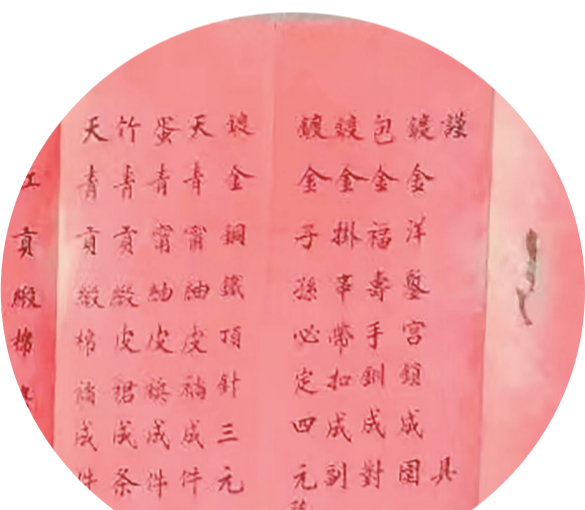 謹具
鍍金洋鏨宮鎖成圍
包金福壽手釧成對
鍍金掛事帶扣成副
鍍金子孫必定四元
鍍金銅鐵頂針三元
天青甯紬皮褂成件
蛋青甯紬皮襖成件
竹青貢緞皮裙成条
天青貢緞棉褂成件
紅貢緞棉